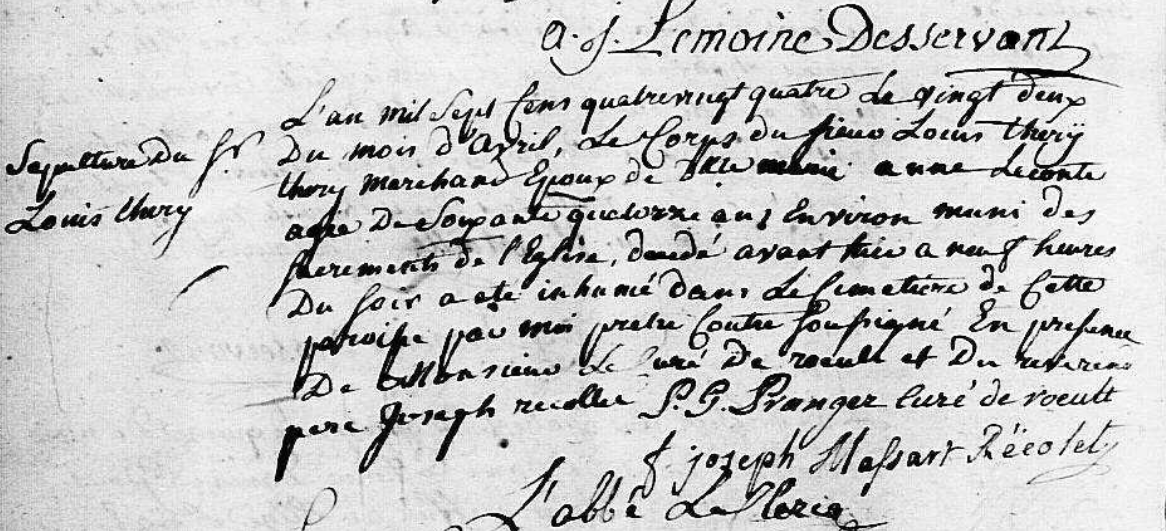 a. j. Lemoine Desservant
Sepulture Du Sr
Louis thery
L'an mil Sept Cens quatrevingt quatre Le vingt deux
Du mois d'Avril, Le Corps du sieur Louis thery
thery marchand Epoux de anne Leconte
agée De Soixante quatorze ans Environ muni des
sacrements de l'Eglise, decedé avant hier a neuf heures
Du soir a ete inhumé dans Le Cimetiere de Cette
paroisse par moi pretre Contre soussigné En presence
De Monsieur Le Curé De roeult et Du reverend
pere Joseph recollec P. G. Pranger Curé de roeult
f joseph Massart Récolet
L'abbé Le Clercq